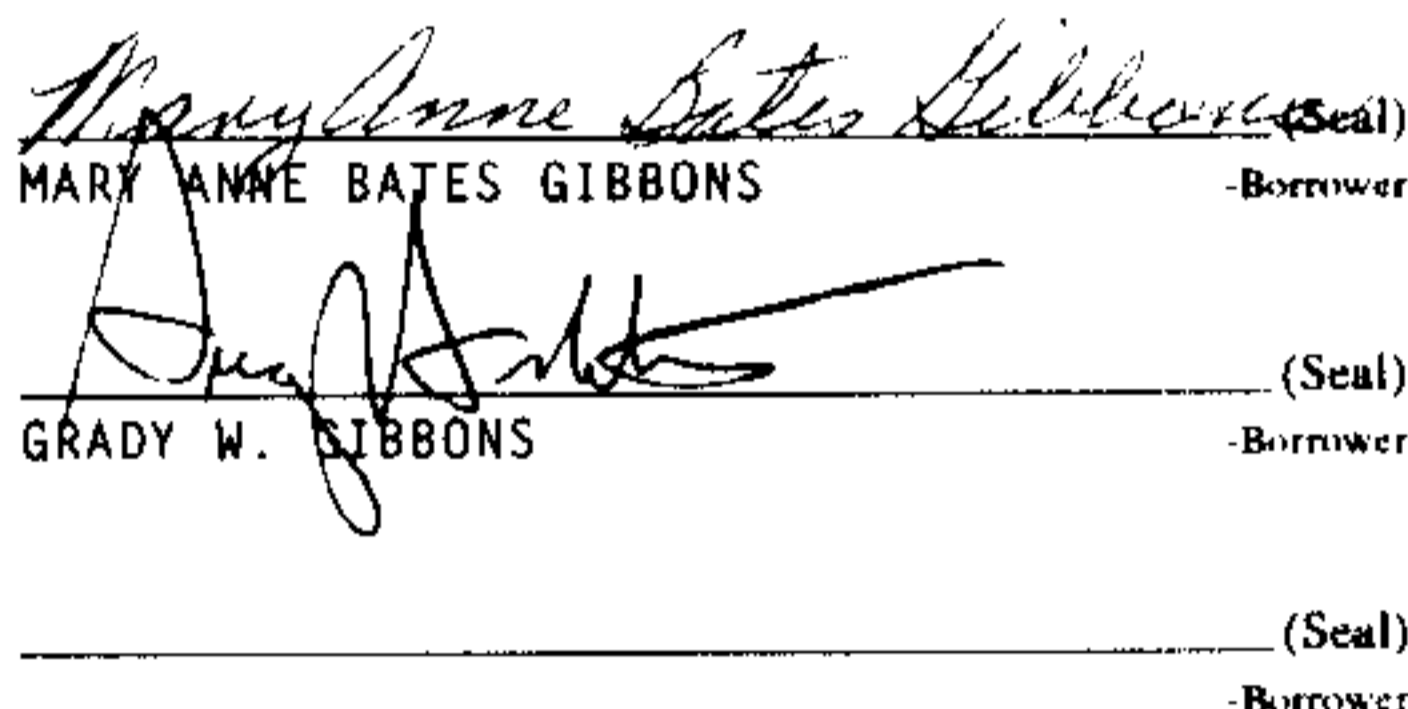 Mary Anne Bates Gibbons (Seal)
MARY ANNE BATES GIBBONS -Borrower
(Seal)
GRADY W. GIBBONS -Borrower
(Seal)
-Borrower